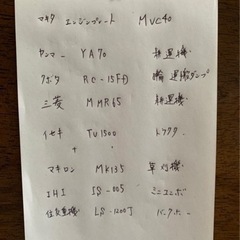 マキタ エンジンブレード MVC40
ヤンマー YA70 耕運機
クボタ RC-15FD 運搬ダンプ
三菱 MMR65 耕運機
イセキ TU1500 トラクター
+
マキロン MK135 草刈機
IHI IS-005 ミニユンボ
住友重機 LS-1200丁 バックホー